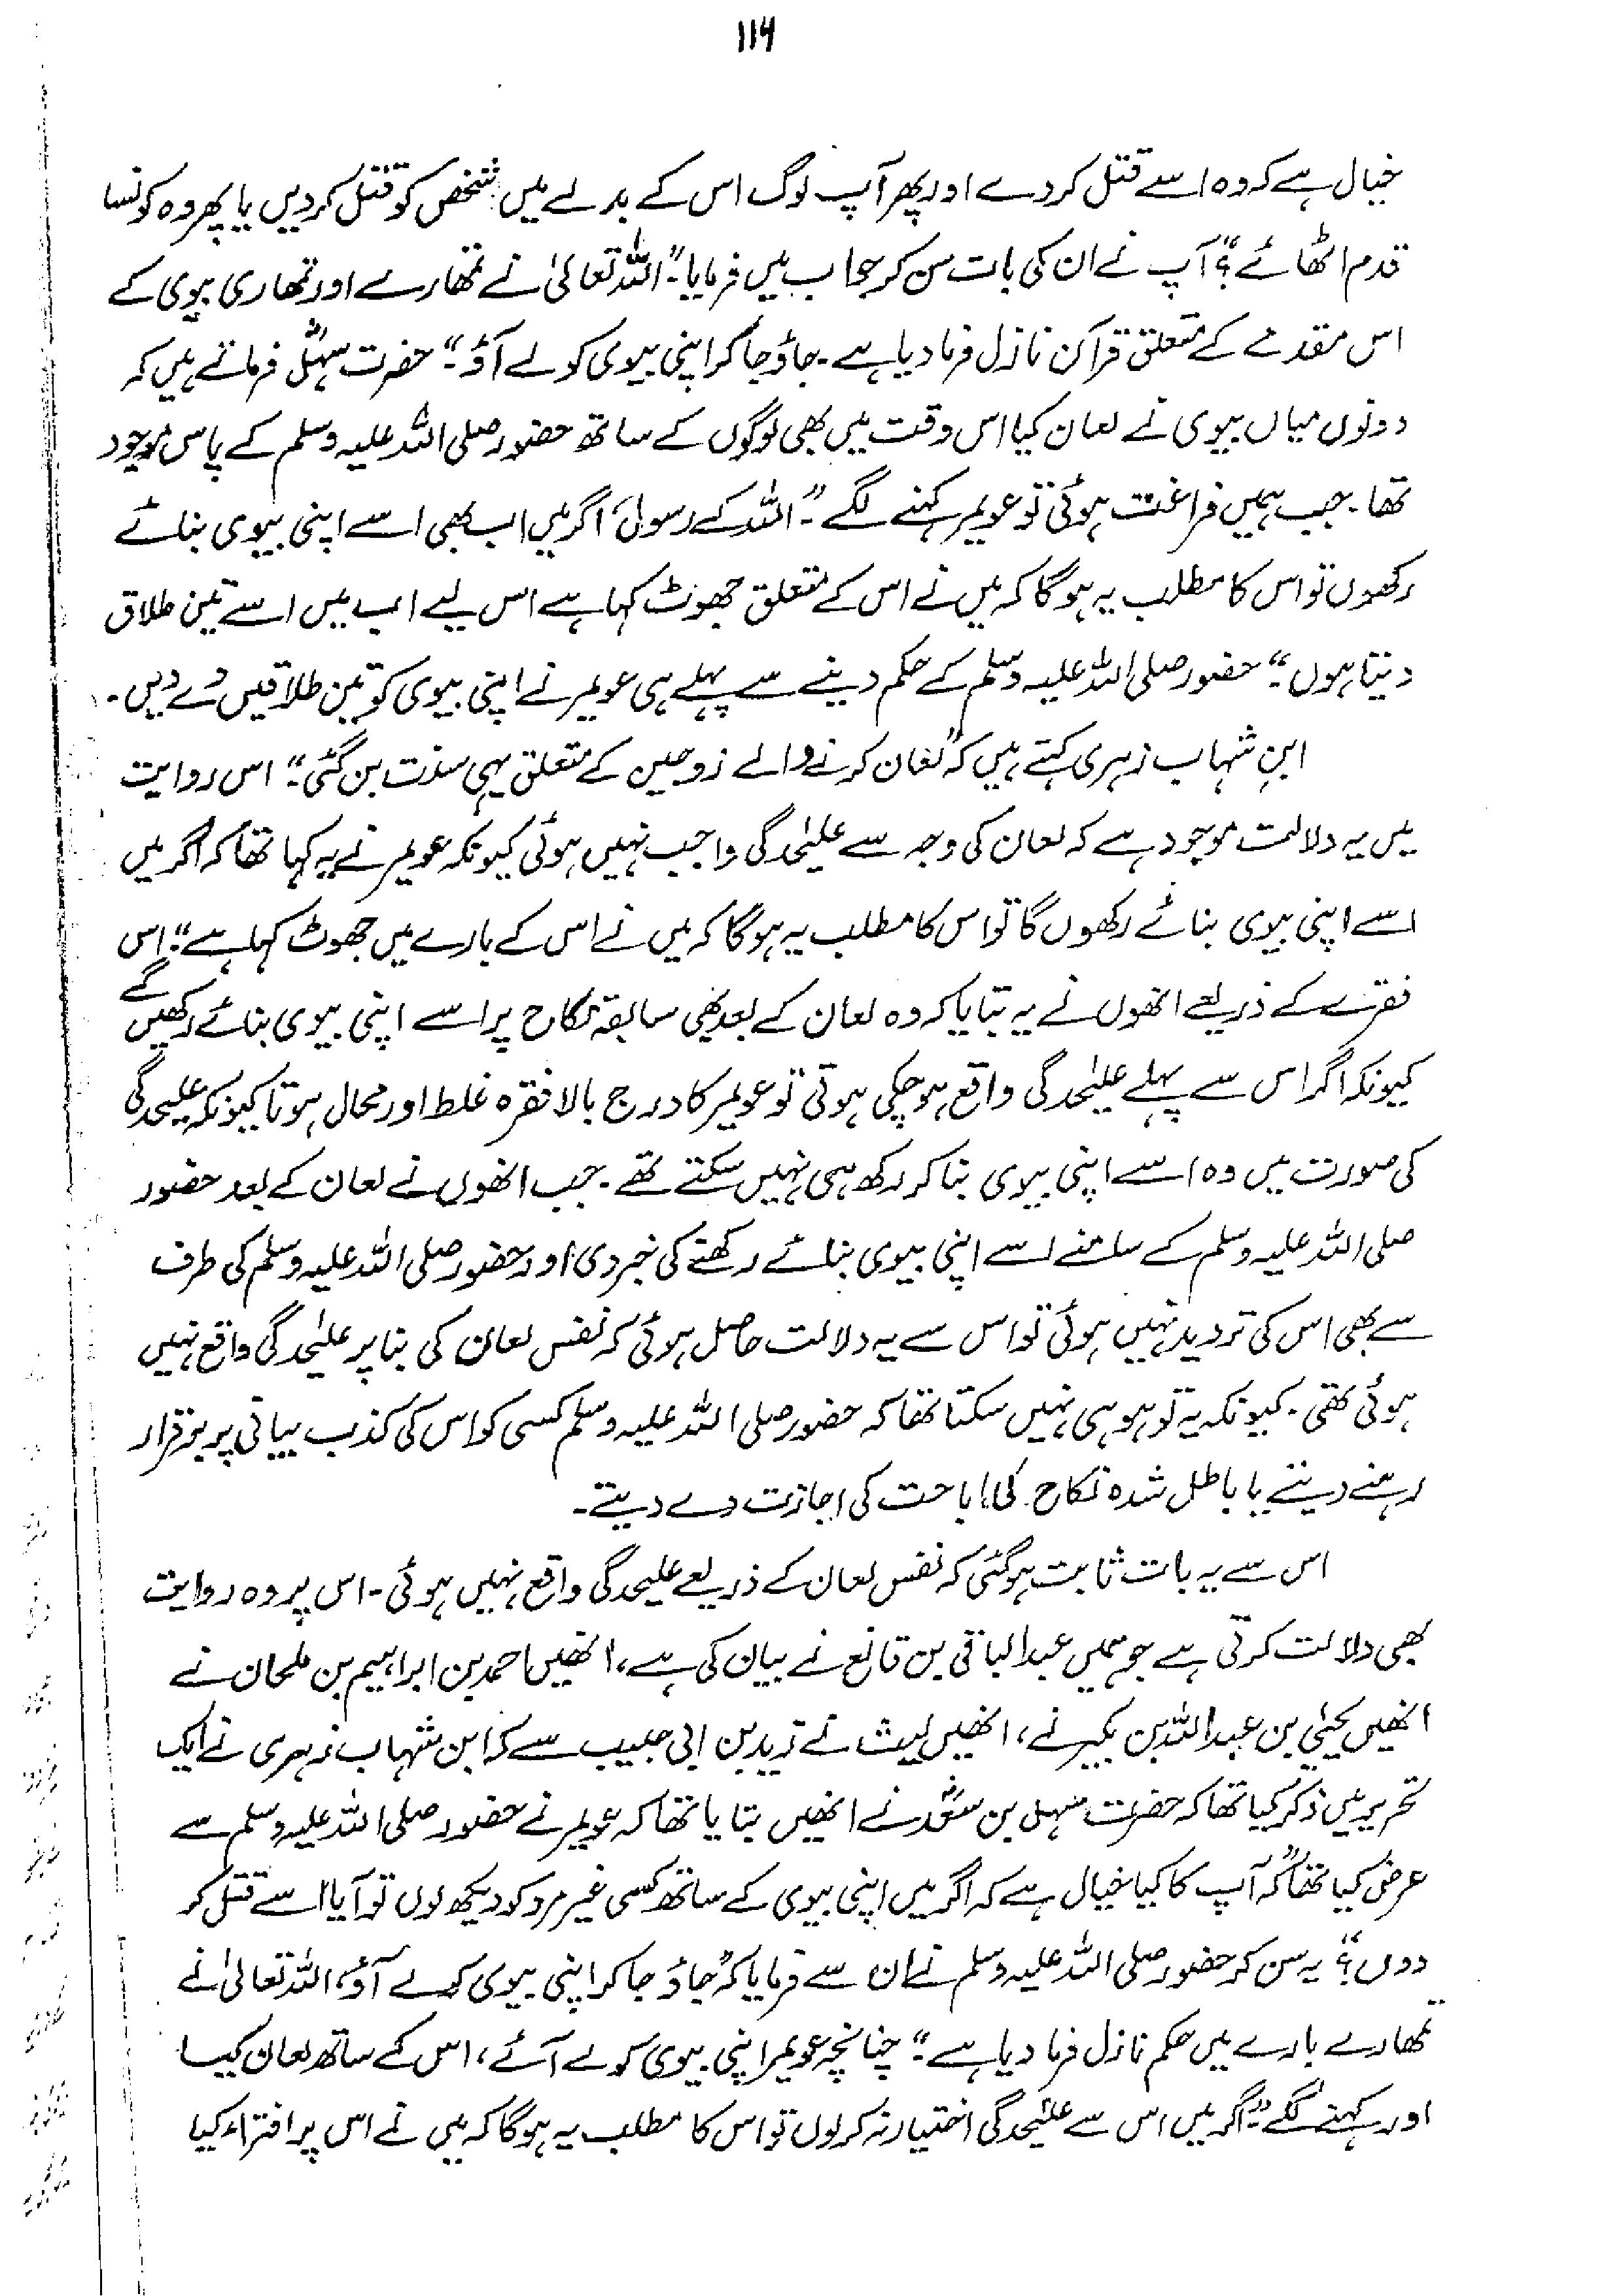 ۱۱۶
خیال ہے کہ وہ اسے قتل کر دے اور پھر آپ لوگ اس کے بدلے میں شخص کو قتل کر دیں یا پھر وہ کونسا
قدم اٹھائے؟" آپ نے ان کی بات سن کر جواب میں فرمایا۔ "اللہ تعالیٰ نے تمھارے اور تمھاری بیوی کے
اس مقدمے کے متعلق قرآن نازل فرما دیا ہے۔ جاؤ جا کر اپنی بیوی کو لے آؤ۔" حضرت سہلؓ فرماتے ہیں کہ
دونوں میاں بیوی نے لعان کیا اس وقت میں بھی لوگوں کے ساتھ حضور صلی اللہ علیہ وسلم کے پاس موجود
تھا۔ جب ہمیں فراغت ہوئی تو عویمر کہنے لگے "۔ اللہ کے رسولؐ اگر میں اب بھی اسے اپنی بیوی بنائے
رکھوں تو اس کا مطلب یہ ہوگا کہ میں نے اس کے متعلق جھوٹ کہا ہے اس لیے اب میں اسے تین طلاق
دیتا ہوں۔" حضور صلی اللہ علیہ وسلم کے حکم دینے سے پہلے ہی عویمر نے اپنی بیوی کو تین طلاقیں دے دیں۔
ابن شہاب زہری کہتے ہیں کہ "لعان کرنے والے زوجین کے متعلق یہی سنت بن گئی۔" اس روایت
میں یہ دلالت موجود ہے کہ لعان کی وجہ سے علیٰحدگی واجب نہیں ہوئی کیونکہ عویمر نے یہ کہا تھا کہ "اگر میں
اسے اپنی بیوی بنائے رکھوں گا تو اس کا مطلب یہ ہوگا کہ میں نے اس کے بارے میں جھوٹ کہا ہے"۔ اس
فقرے کے ذریعے انھوں نے یہ بتایا کہ وہ لعان کے بعد بھی سابقہ نکاح پر اسے اپنی بیوی بنائے رکھیں گے
کیونکہ اگر اس سے پہلے علیٰحدگی واقع ہو چکی ہوتی تو عویمر کا درج بالا فقرہ غلط اور محال ہوتا کیونکہ علیٰحدگی
کی صورت میں وہ اسے اپنی بیوی بنا کر رکھ ہی نہیں سکتے تھے۔ جب انھوں نے لعان کے بعد حضور
صلی اللہ علیہ وسلم کے سامنے اسے اپنی بیوی بنائے رکھنے کی خبر دی اور حضور صلی اللہ علیہ وسلم کی طرف
سے بھی اس کی تردید نہیں ہوئی تو اس سے یہ دلالت حاصل ہوئی کہ نفس لعان کی بنا پر علیٰحدگی واقع نہیں
ہوئی تھی۔ کیونکہ یہ تو ہو ہی نہیں سکتا تھا کہ حضور صلی اللہ علیہ وسلم کسی کو اس کی کذب بیانی پر برقرار
رہنے دیتے یا باطل شدہ نکاح کی اباحت کی اجازت دے دیتے۔
اس سے یہ بات ثابت ہوگئی کہ نفس لعان کے ذریعے علیٰحدگی واقع نہیں ہوئی۔ اس پر وہ روایت
بھی دلالت کرتی ہے جو ہمیں عبدالباقی بن قانع نے بیان کی ہے، انھیں احمد بن ابراہیم بن ملحان نے
انھیں یحییٰ بن عبداللہ بن بکیر نے، انھیں لیث نے زید بن ابی حبیب سے کہ ابن شہاب زہری نے ایک
تحریر میں ذکر کیا تھا کہ حضرت سہل بن سعدؓ نے انھیں بتایا تھا کہ عویمر نے حضور صلی اللہ علیہ وسلم سے
عرض کیا تھا کہ "آپ کا کیا خیال ہے کہ اگر میں اپنی بیوی کے ساتھ کسی غیر مرد کو دیکھ لوں تو آیا اسے قتل کر
دوں؟" یہ سن کر حضور صلی اللہ علیہ وسلم نے ان سے فرمایا کہ "جاؤ جا کر اپنی بیوی کو لے آؤ، اللہ تعالیٰ نے
تمھارے بارے میں حکم نازل فرما دیا ہے۔" چنانچہ عویمر اپنی بیوی کو لے آئے، اس کے ساتھ لعان کیا
اور کہنے لگے "اگر میں اس سے علیٰحدگی اختیار نہ کر لوں تو اس کا مطلب یہ ہوگا کہ میں نے اس پر افتراء کیا